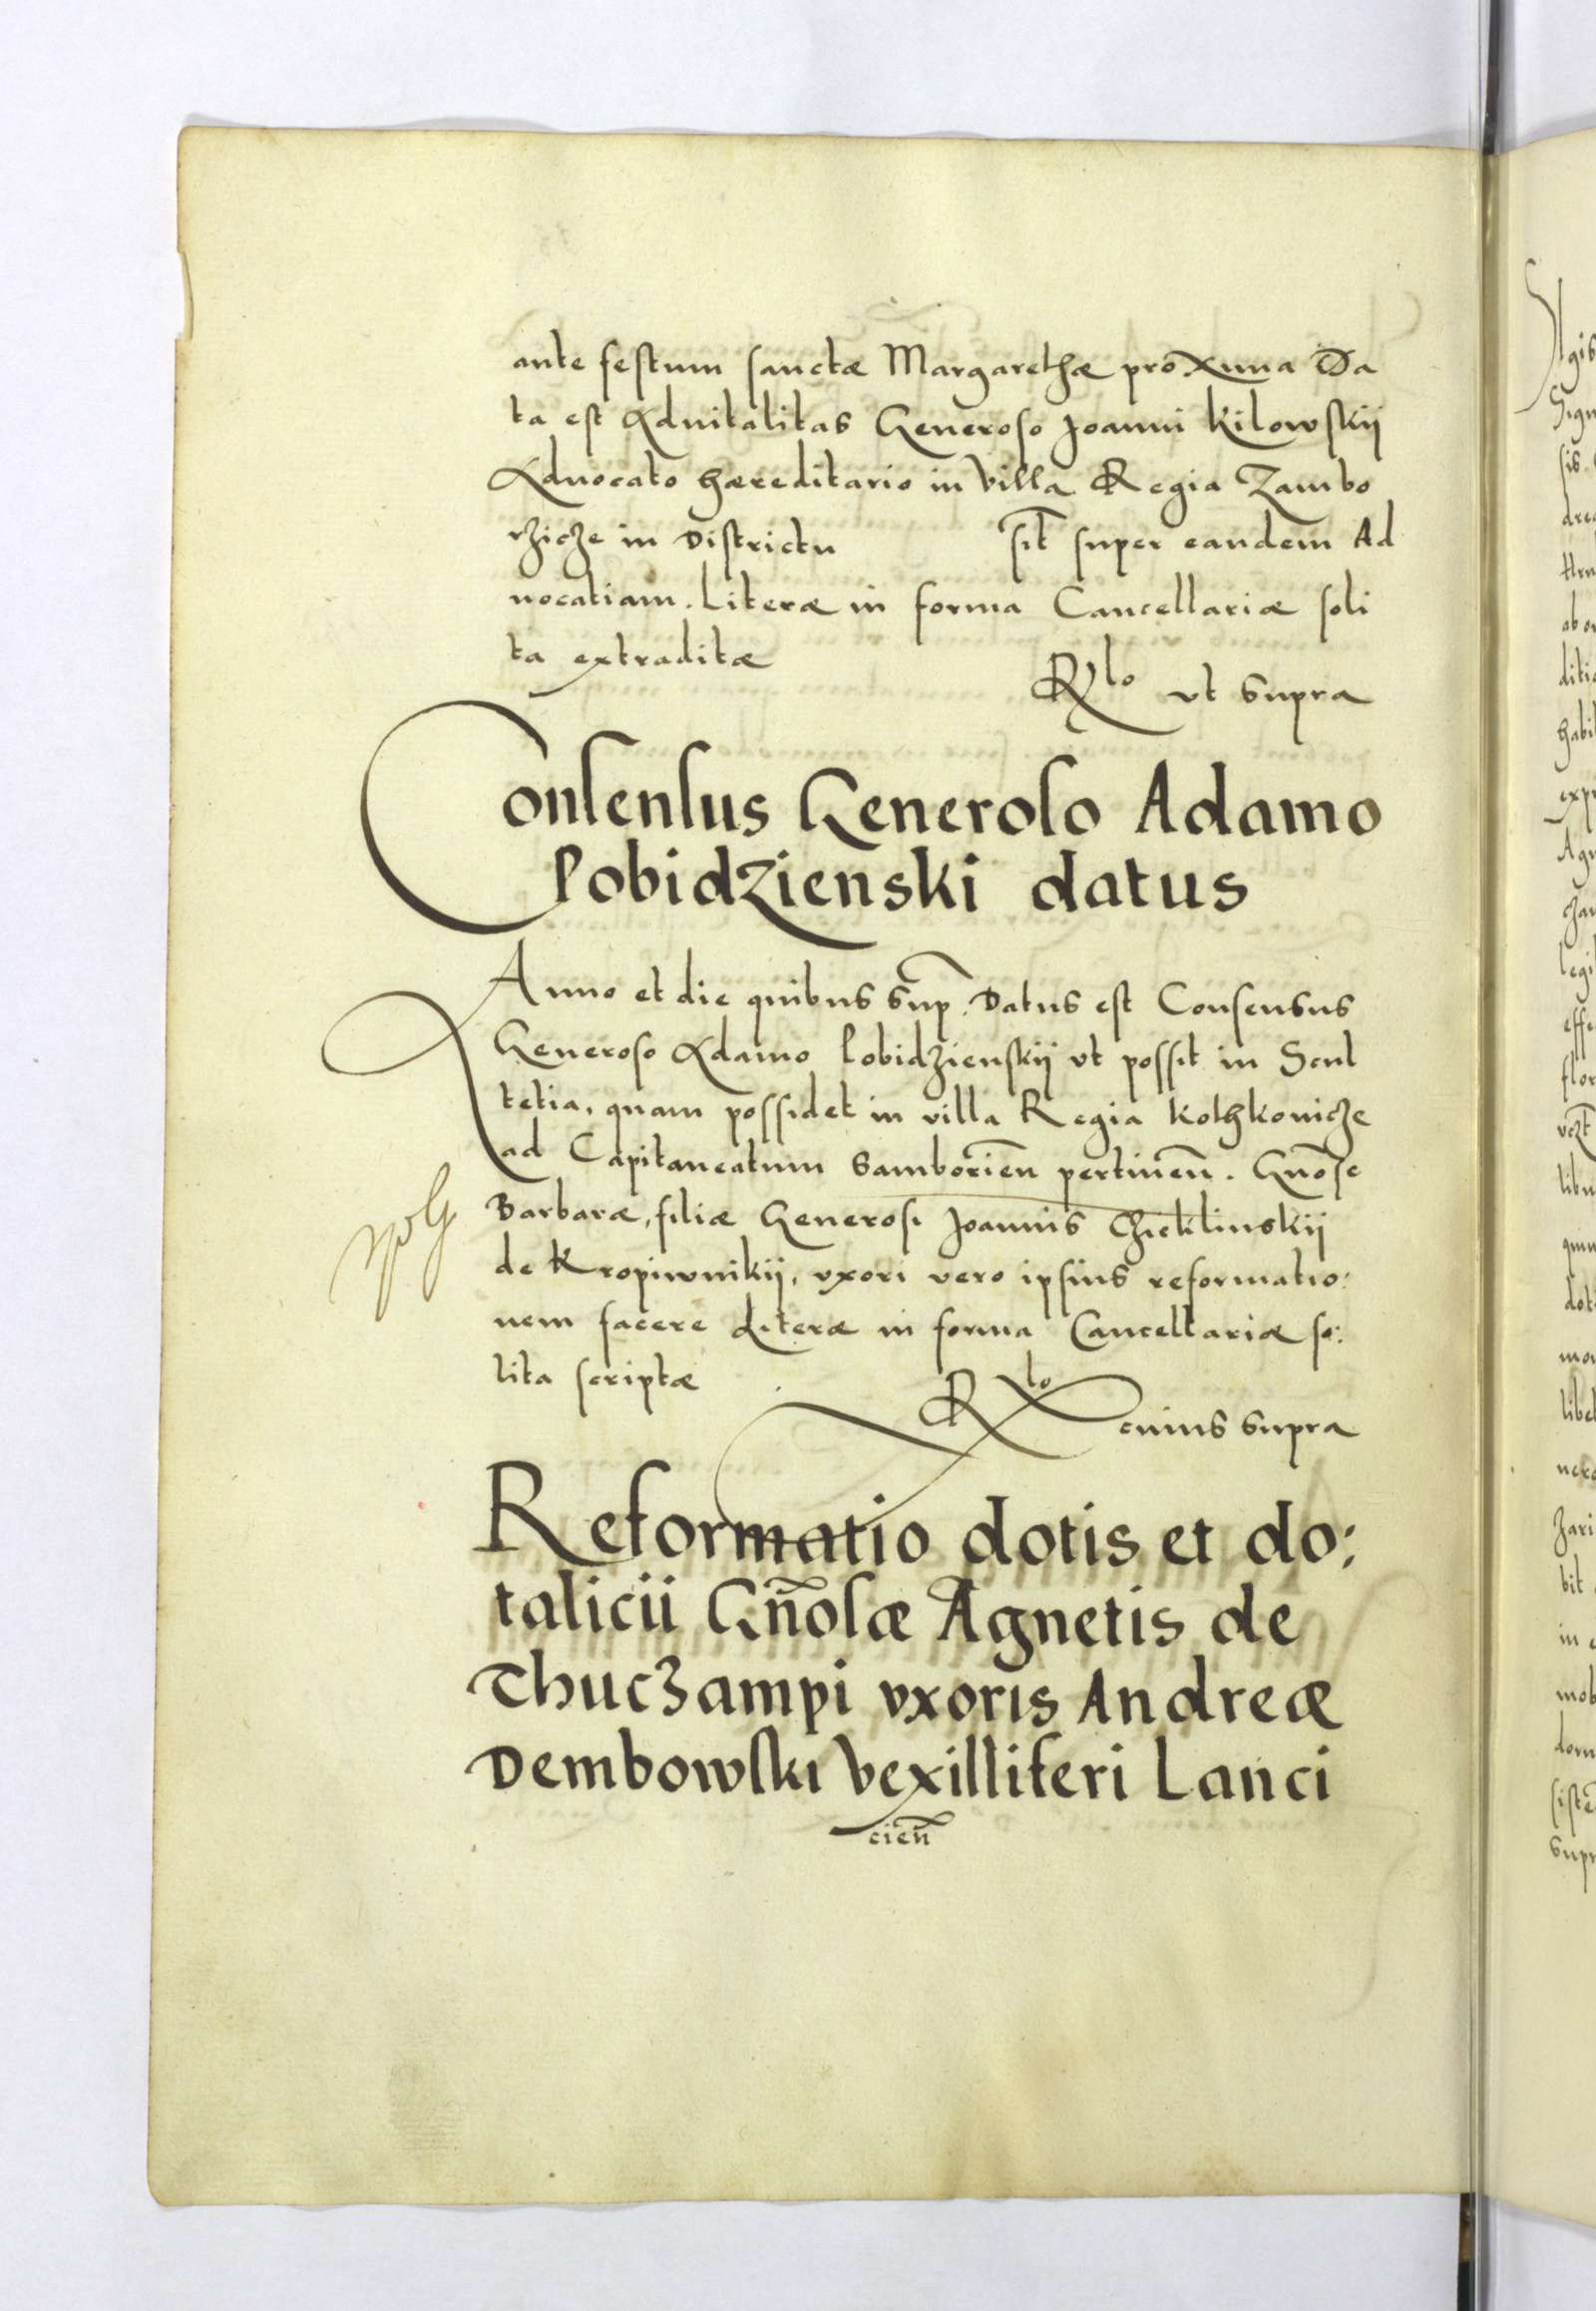 ante festum sanctæ Margarethæ proxima Da
ta est Advitalitas Generoso Joanni Kilowskij
Advocato hæreditario in Villa Regia Zambo
rzicze in Districtu sit super eandem Ad
vocatiam. Literæ in forma Cancellariæ soli
ta extraditæ
Rlo vt supra
Consensus Generoso Adamo
Pobidzienski datus
Anno et die quibus sup. Datus est Consensus
Generoso Adamo Pobidzienskij vt possit in Scul
tetia, quam possidet in villa Regia Kothkonicze
ad Capitaneatum Samborien̄ pertinen̄. Gnōse
Barbaræ, filiæ Generosi Joannis
de Kropiwnikij, vxori vero ipsius reformatio:
nem facere Literæ in forma Cancellariæ so:
lita scriptæ
Rlo cuius supra
Reformatio dotis et do:
talicii Gn̄osæ Agnetis de
Thuczampi vxoris Andreæ
Dembowski Vexilliferi Lanci
cien̄